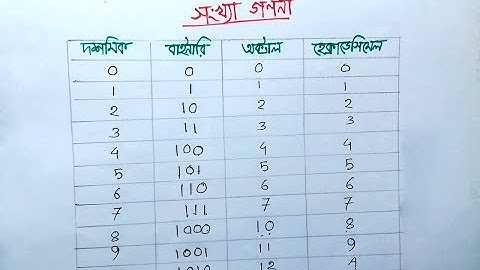 সংখ্যা গননা
দশমিক বাইনারি অক্টাল হেক্সাডেসিমেল
0 0 0 0
1 1 1 1
2 10 2 2
3 11 3 3
4 100 4 4
5 101 5 5
6 110 6 6
7 111 7 7
8 1000 10 8
9 1001 11 9
1010 12 A